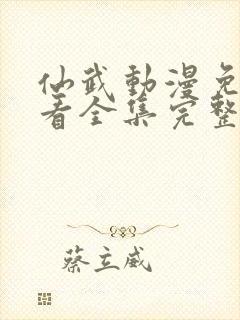 仙武動漫免
看全集完整
蔡立威